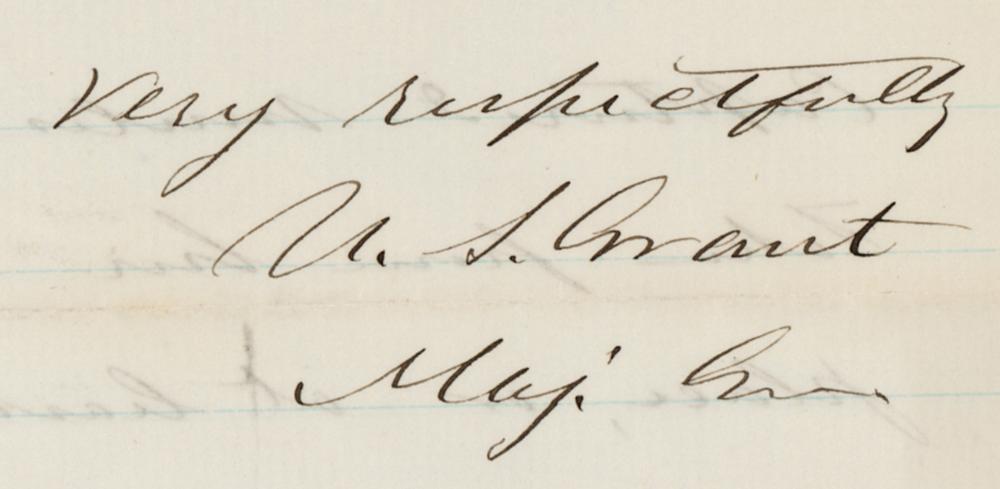 Very respectfully
U. S. Grant
Maj. Gen.